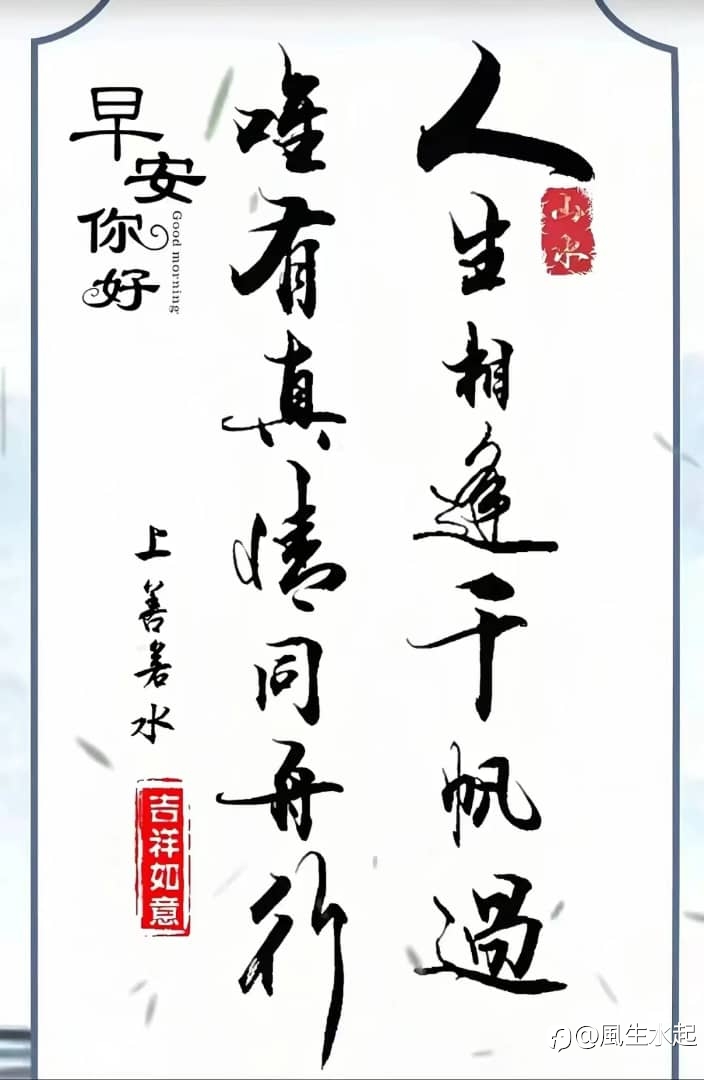 人生相逢千帆過
唯有真情同舟行
山水
早安你好
Good morning
上善若水
吉祥如意
@風生水起